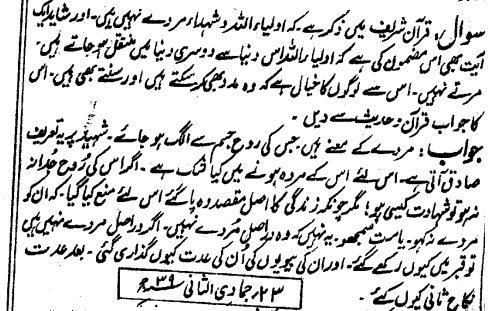 سوال: قرآن شریف میں ذکر ہے۔ کہ اولیاء اللہ و شہداء مردے نہیں ہیں۔ اور شاید ایک
آیت بھی اس مضمون کی ہے کہ اولیاء اللہ اس دنیا سے دوسری دنیا میں منتقل ہو جاتے ہیں۔
مرتے نہیں۔ اس سے لوگوں کا خیال ہے کہ وہ مدد بھی کر سکتے ہیں اور سنتے بھی ہیں۔ اس
کا جواب قرآن و حدیث سے دیں۔
جواب: مردے کے معنے ہیں۔ جس کی روح جسم سے الگ ہو جائے۔ شہید پر یہ تعریف
صادق آتی ہے۔ اس لئے اس کے مردہ ہونے میں کیا شک ہے۔ اگر اس کی روح جدا نہ
نہ ہو تو شہادت کیسی ہو! مگر چونکہ زندگی کا اصل مقصد وہ پا گئے اس لئے منع کیا گیا کہ ان کو
مردے نہ کہو۔ یا مت سمجھو۔ یہ نہیں کہ وہ دراصل مردے نہیں۔ اگر دراصل مردے نہیں ہیں
تو قبر میں کیوں رکھے گئے۔ اور ان کی بیویوں کی ان کی عدت کیوں گذاری گئی۔ بعد عدت
نکاح ثانی کیوں کئے۔
۲۳ جمادی الثانی ۳۹ھ